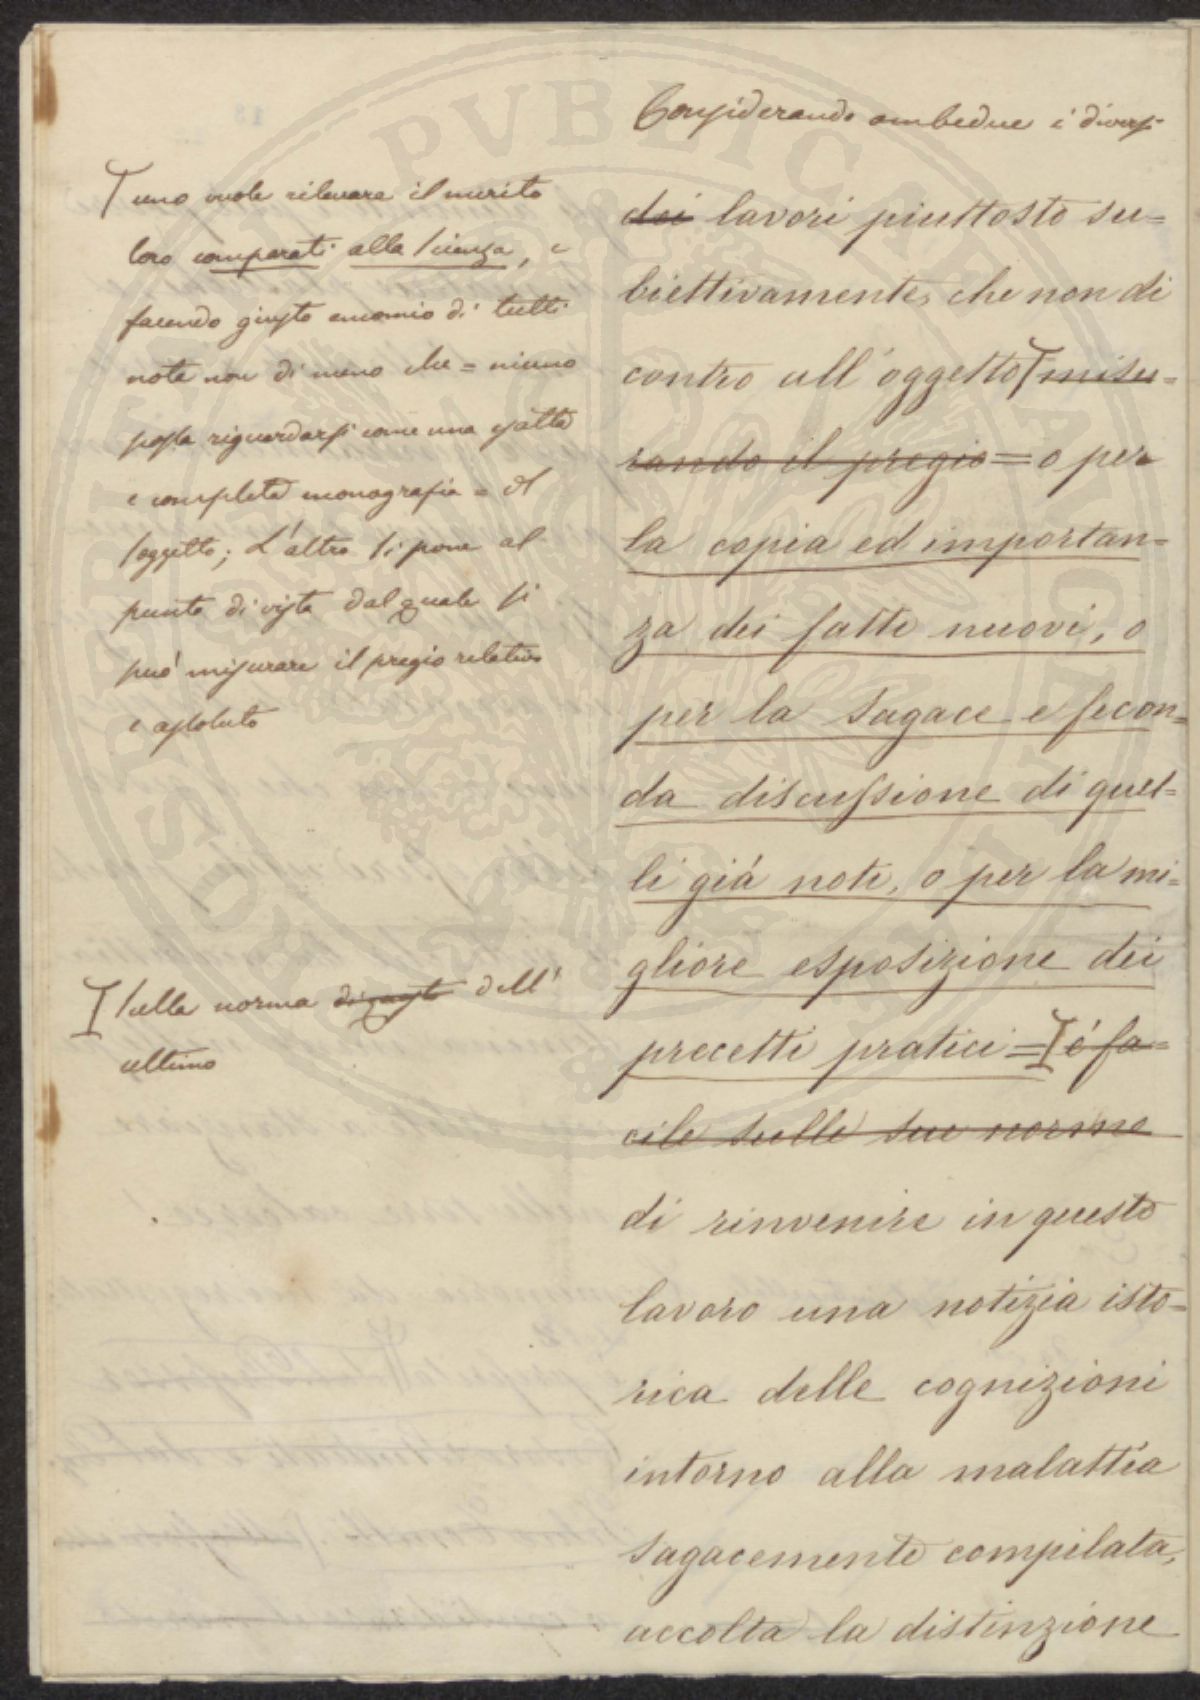 Considerando ambedue i diversi
dei lavori piuttosto su=
biettivamente, che non di
contro all'oggetto misu=
rando il pregio = o per
la copia ed importan=
za dei fatti nuovi, o
per la sagace e fecon=
da discussione di quel=
li giá noti, o per la mi=
gliore esposizione dei
precetti pratici = é fa=
cile sulle sue norme
di rinvenire in questo
lavoro una notizia isto=
rica delle cognizioni
intorno alla malattia
sagacemente compilata,
accolta la distinzione
uno vuole rilevare il merito
loro comparati alla scienza, e
facendo giusto encomio di tutti
nota non di meno che = niuno
possa riguardarsi come una esatta
e completa monografia = del
soggetto; L'altro si pone al
punto di vista dal quale si
puó misurare il pregio relativo
e assoluto
sulla norma di questo dell'
ultimo